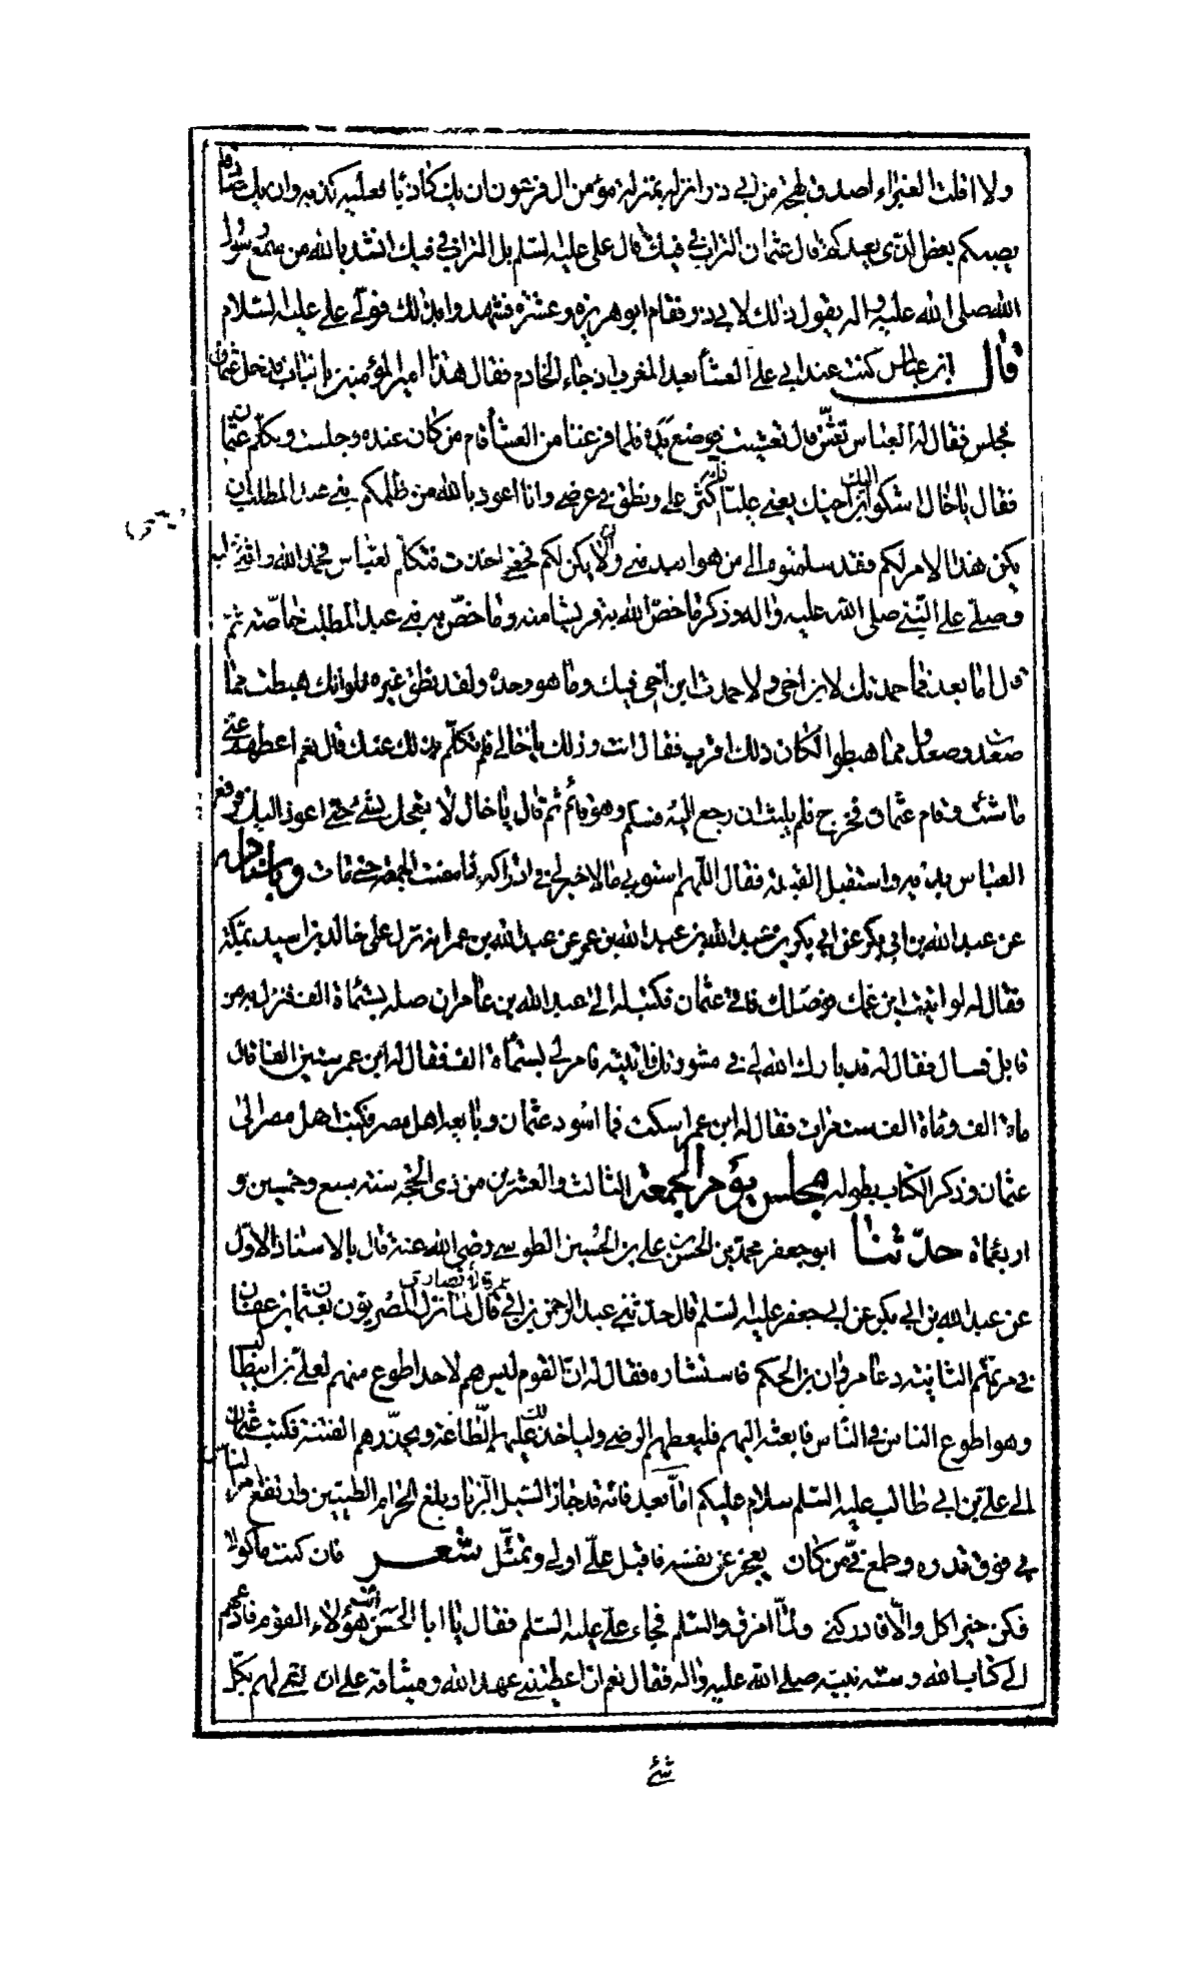 ولا اقلت الغبراء اصدق لهجة من ابي ذر انزله بمنزلة مؤمن ال فرعون ان يك كاذبا فعليه كذبه وان يك صادقا
يصبكم بعض الذي يعدكم قال عثمان التراب في فيك قال علي عليه السلم بل التراب في فيك انشد بالله من سمع رسول
الله صلى الله عليه واله يقول ذلك لابي ذر فقام ابو هريرة وعشرة فشهدوا بذلك فولى علي عليه السلام
قال ابن عباس كنت عند ابي على العشاء بعد المغرب اذ جاء الخادم فقال هذا امير المؤمنين بالباب فدخل عثمان
فجلس فقال له العباس تعش قال تعشيت فوضع يده فلما فرغنا من العشاء قام من كان عنده وجلست وتكلم عثمان
فقال يا خال اشكو اليك ابن اخيك يعني عليا اكثر علي ونطق في عرضي وانا اعوذ بالله من ظلمكم بني عبد المطلب ان
يكن هذا الامر لكم فقد سلمتموه الى من هو ابعد مني وان لا يكن لكم فحقي اخذت فتكلم العباس فحمد الله واثنى عليه
وصلى على النبي صلى الله عليه واله وذكر ما خص الله به قريشا منه وما خص به بني عبد المطلب خاصة ثم
قال اما بعد فما حمدتك لابن اخي ولا حمدت ابن اخي فيك وما هو وحده ولقد نطق غيره فلو انك هبطت مما
صعدت وصعدوا مما هبطوا لكان ذلك اقرب فقال انت وذلك يا خالي فلم تكلم بذلك عنك قال نعم اعطهم عني
ما شئت وقام عثمان فخرج فلم يلبث ان رجع اليه فسلم وهو قائم ثم قال يا خال لا تعجل بشئ حتى اعود اليك فرفع
العباس يديه واستقبل القبلة فقال اللهم اسبق بي ما لا خير لي في ادراكه فما مضت الجمعة حتى مات وباسناده
عن عبد الله بن ابي بكر عن ابي بكر بن عبد الله بن عبد الله بن عمر عن عبد الله بن عمر انه نزل على خالد بن اسيد بمكة
فقال له لو اتيت ابن عمك فوصلك فاتى عثمان فكتب له الى عبد الله بن عامر ان صله بستمائة الف فنزل به من
قابل فسال فقال له قد بارك الله لي في مشورتك فاتيته فامر لي بستمائة الف فقال له ابن عمر ستين الفا قال
مائة الف ومائة الف ست مرات فقال له ابن عمر اسكت فما اسود عثمان وبايعه اهل مصر فكتب اهل مصر الى
عثمان وذكر الكتاب بطوله مجلس يوم الجمعة الثالث والعشرين من ذي الحجة سنة سبع وخمسين و
اربعمائة حدثنا ابو جعفر محمد بن الحسن بن علي بن الحسين الطوسي رضي الله عنه قال بالاسناد الاول
عن عبد الله بن ابي بكر عن ابي جعفر عليه السلم قال حدثني عبد الرحمن بن ابي عمرة الانصاري قال لما نزل المصريون بعثمان بن عفان
في مرتهم الثانية دعا مروان بن الحكم فاستشاره فقال له ان القوم ليس هم لاحد اطوع منهم لعلي بن ابيطالب
وهو اطوع الناس في الناس فابعثه اليهم فليعطهم الرضى ولياخذ لك عليهم الطاعة ويحذرهم الفتنة فكتب عثمان
الى علي بن ابي طالب عليه السلم سلام عليكم اما بعد فانه قد جاز السيل الزبا وبلغ الحزام الطبيين وارتفع امر الناس
بي فوق قدره وطمع في من كان يعجز عن نفسه فاقبل علي اولى وتمثل شعر فان كنت ماكولا
فكن خير اكل والا فادركني ولما امزق والسلم فجاء علي عليه السلم فقال يا ابا الحسن ائت هؤلاء القوم فادعهم
الى كتاب الله وسنة نبيه صلى الله عليه واله فقال نعم ان اعطيتني عهد الله وميثاقه على ان تفي لهم بكل
شئ